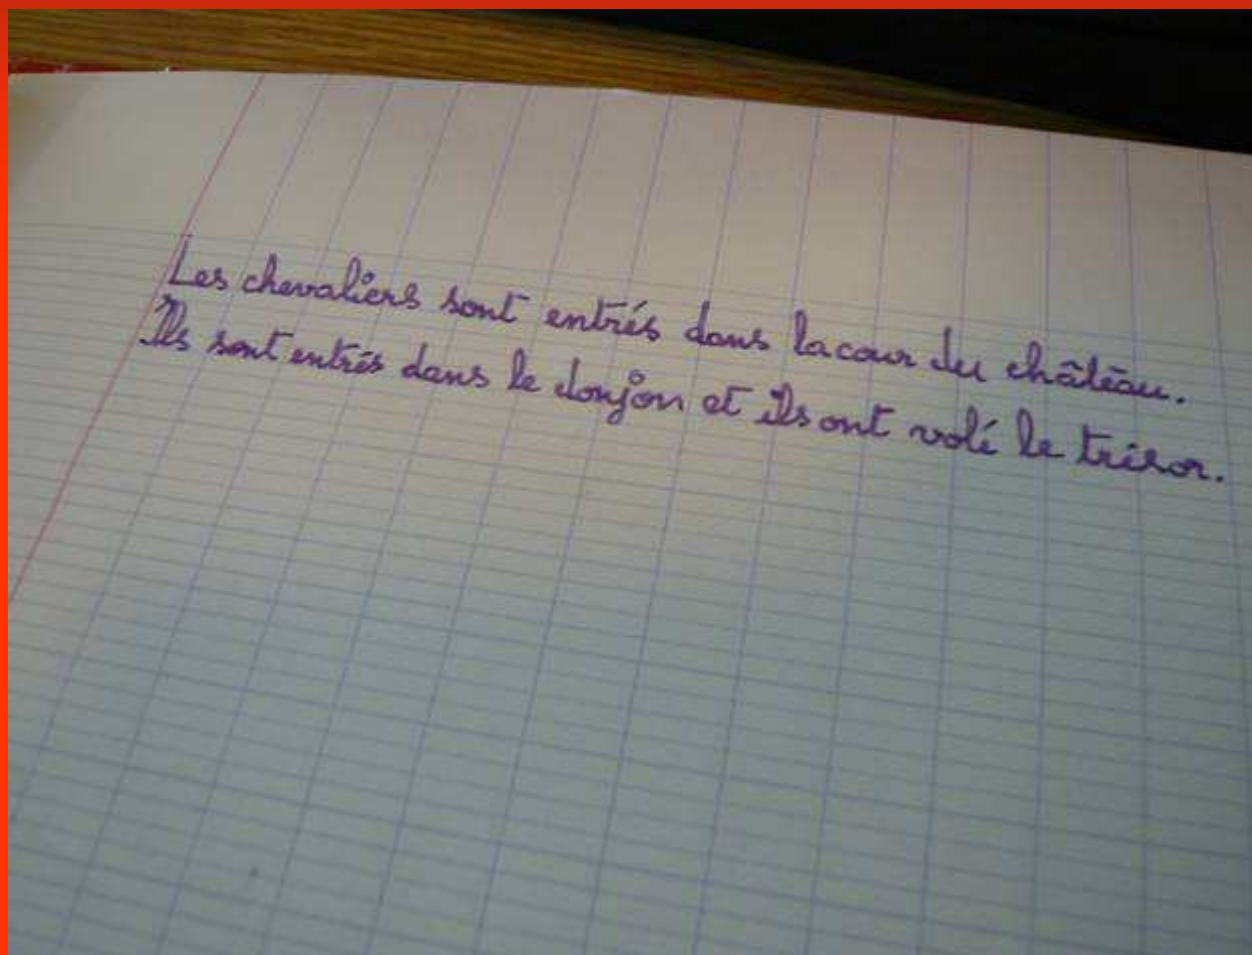 Les chevaliers sont entrés dans la cour du château.
Ils sont entrés dans le donjon et ils ont volé le trésor.